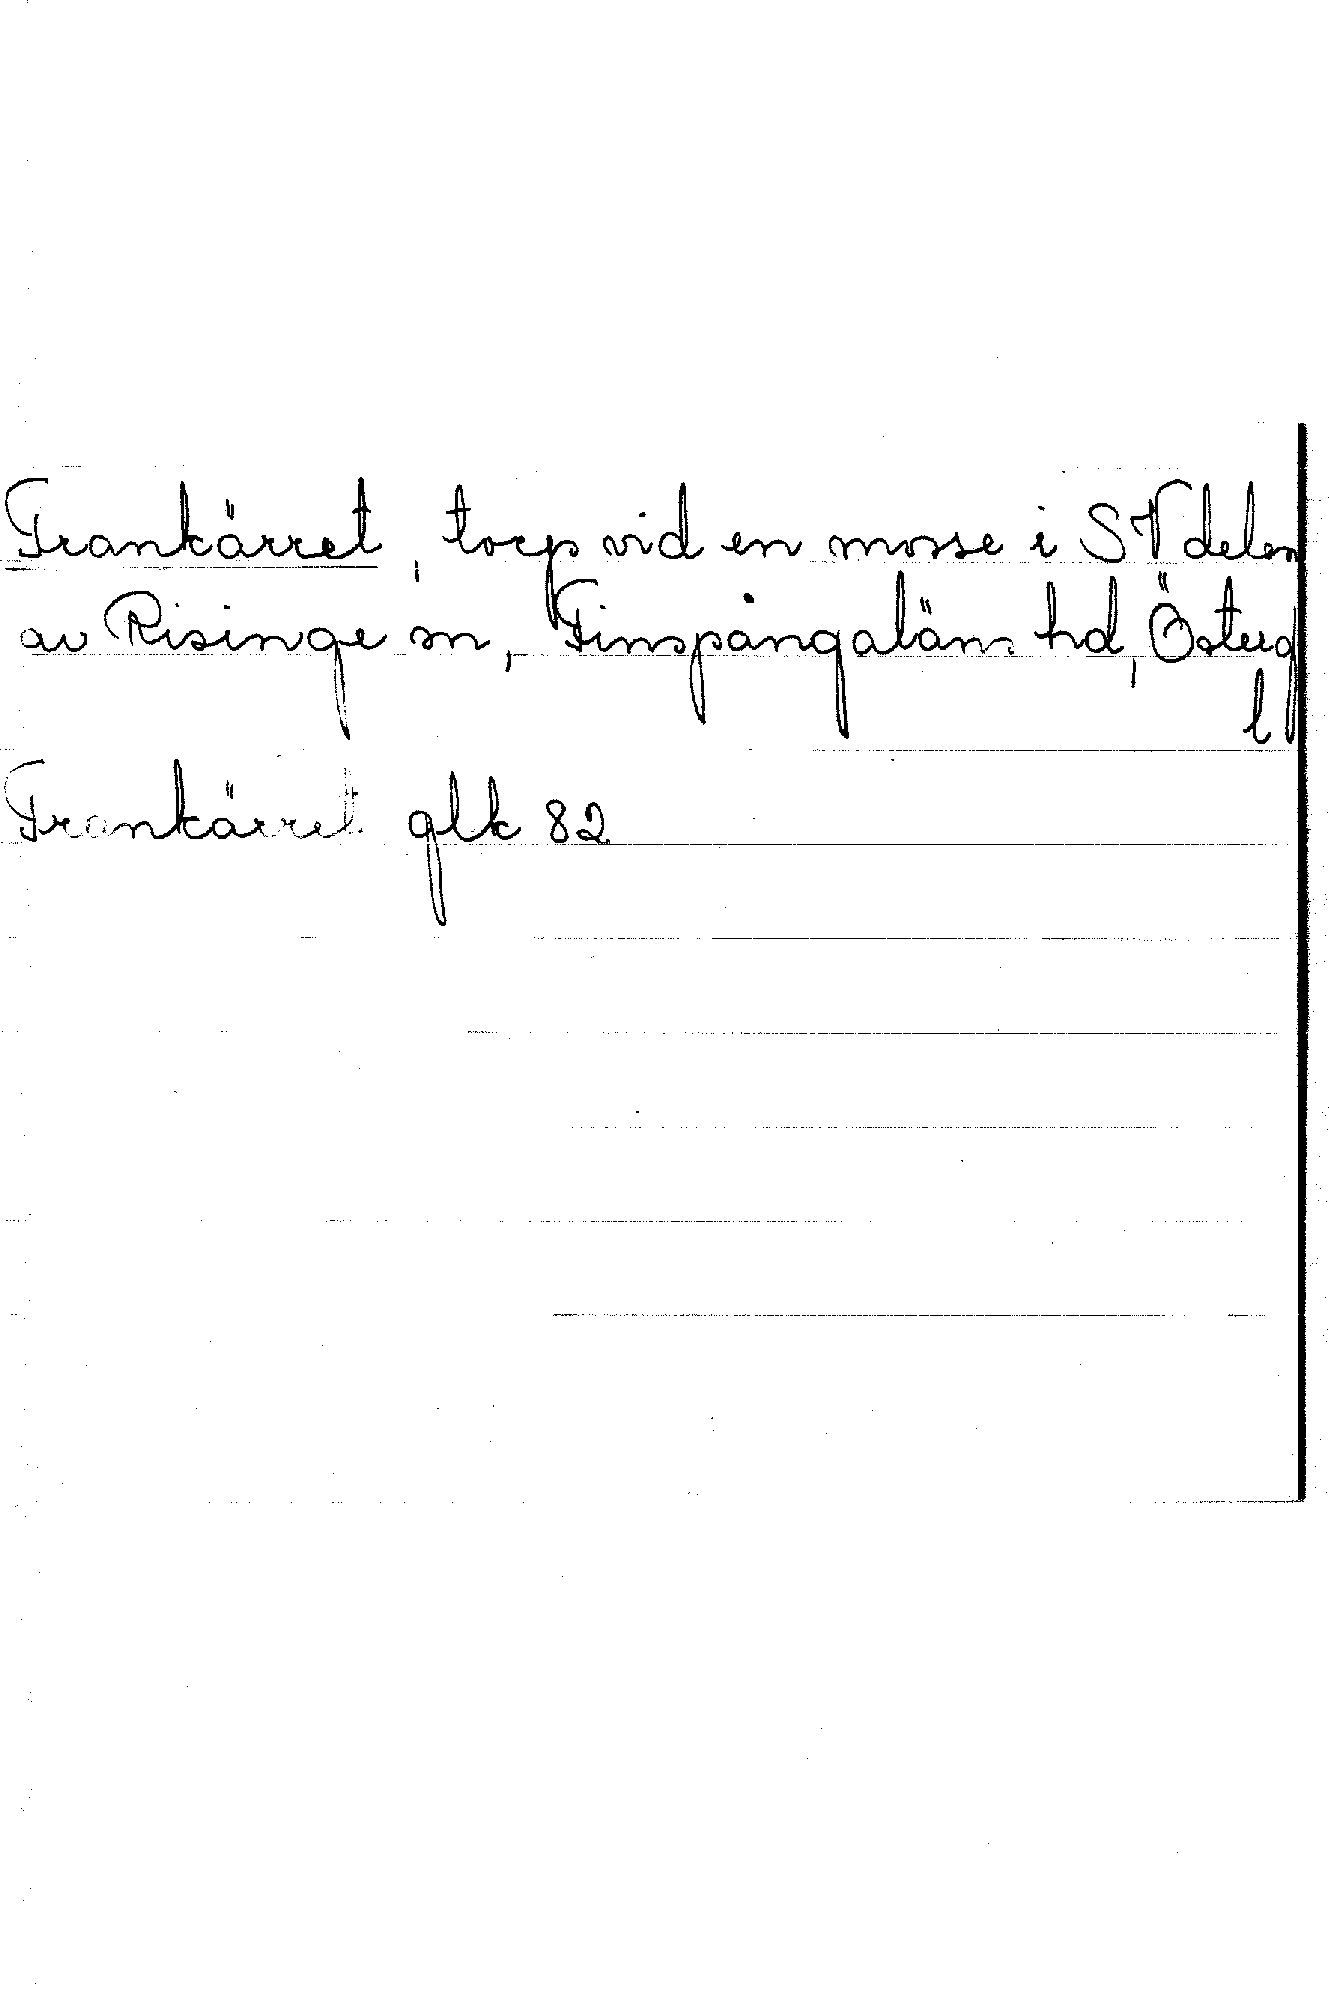 Frankärret, torp vid en mosse i SV delen
av Risinge sn, Finspångaläns hd, Österg
l
Frankärret glk 82